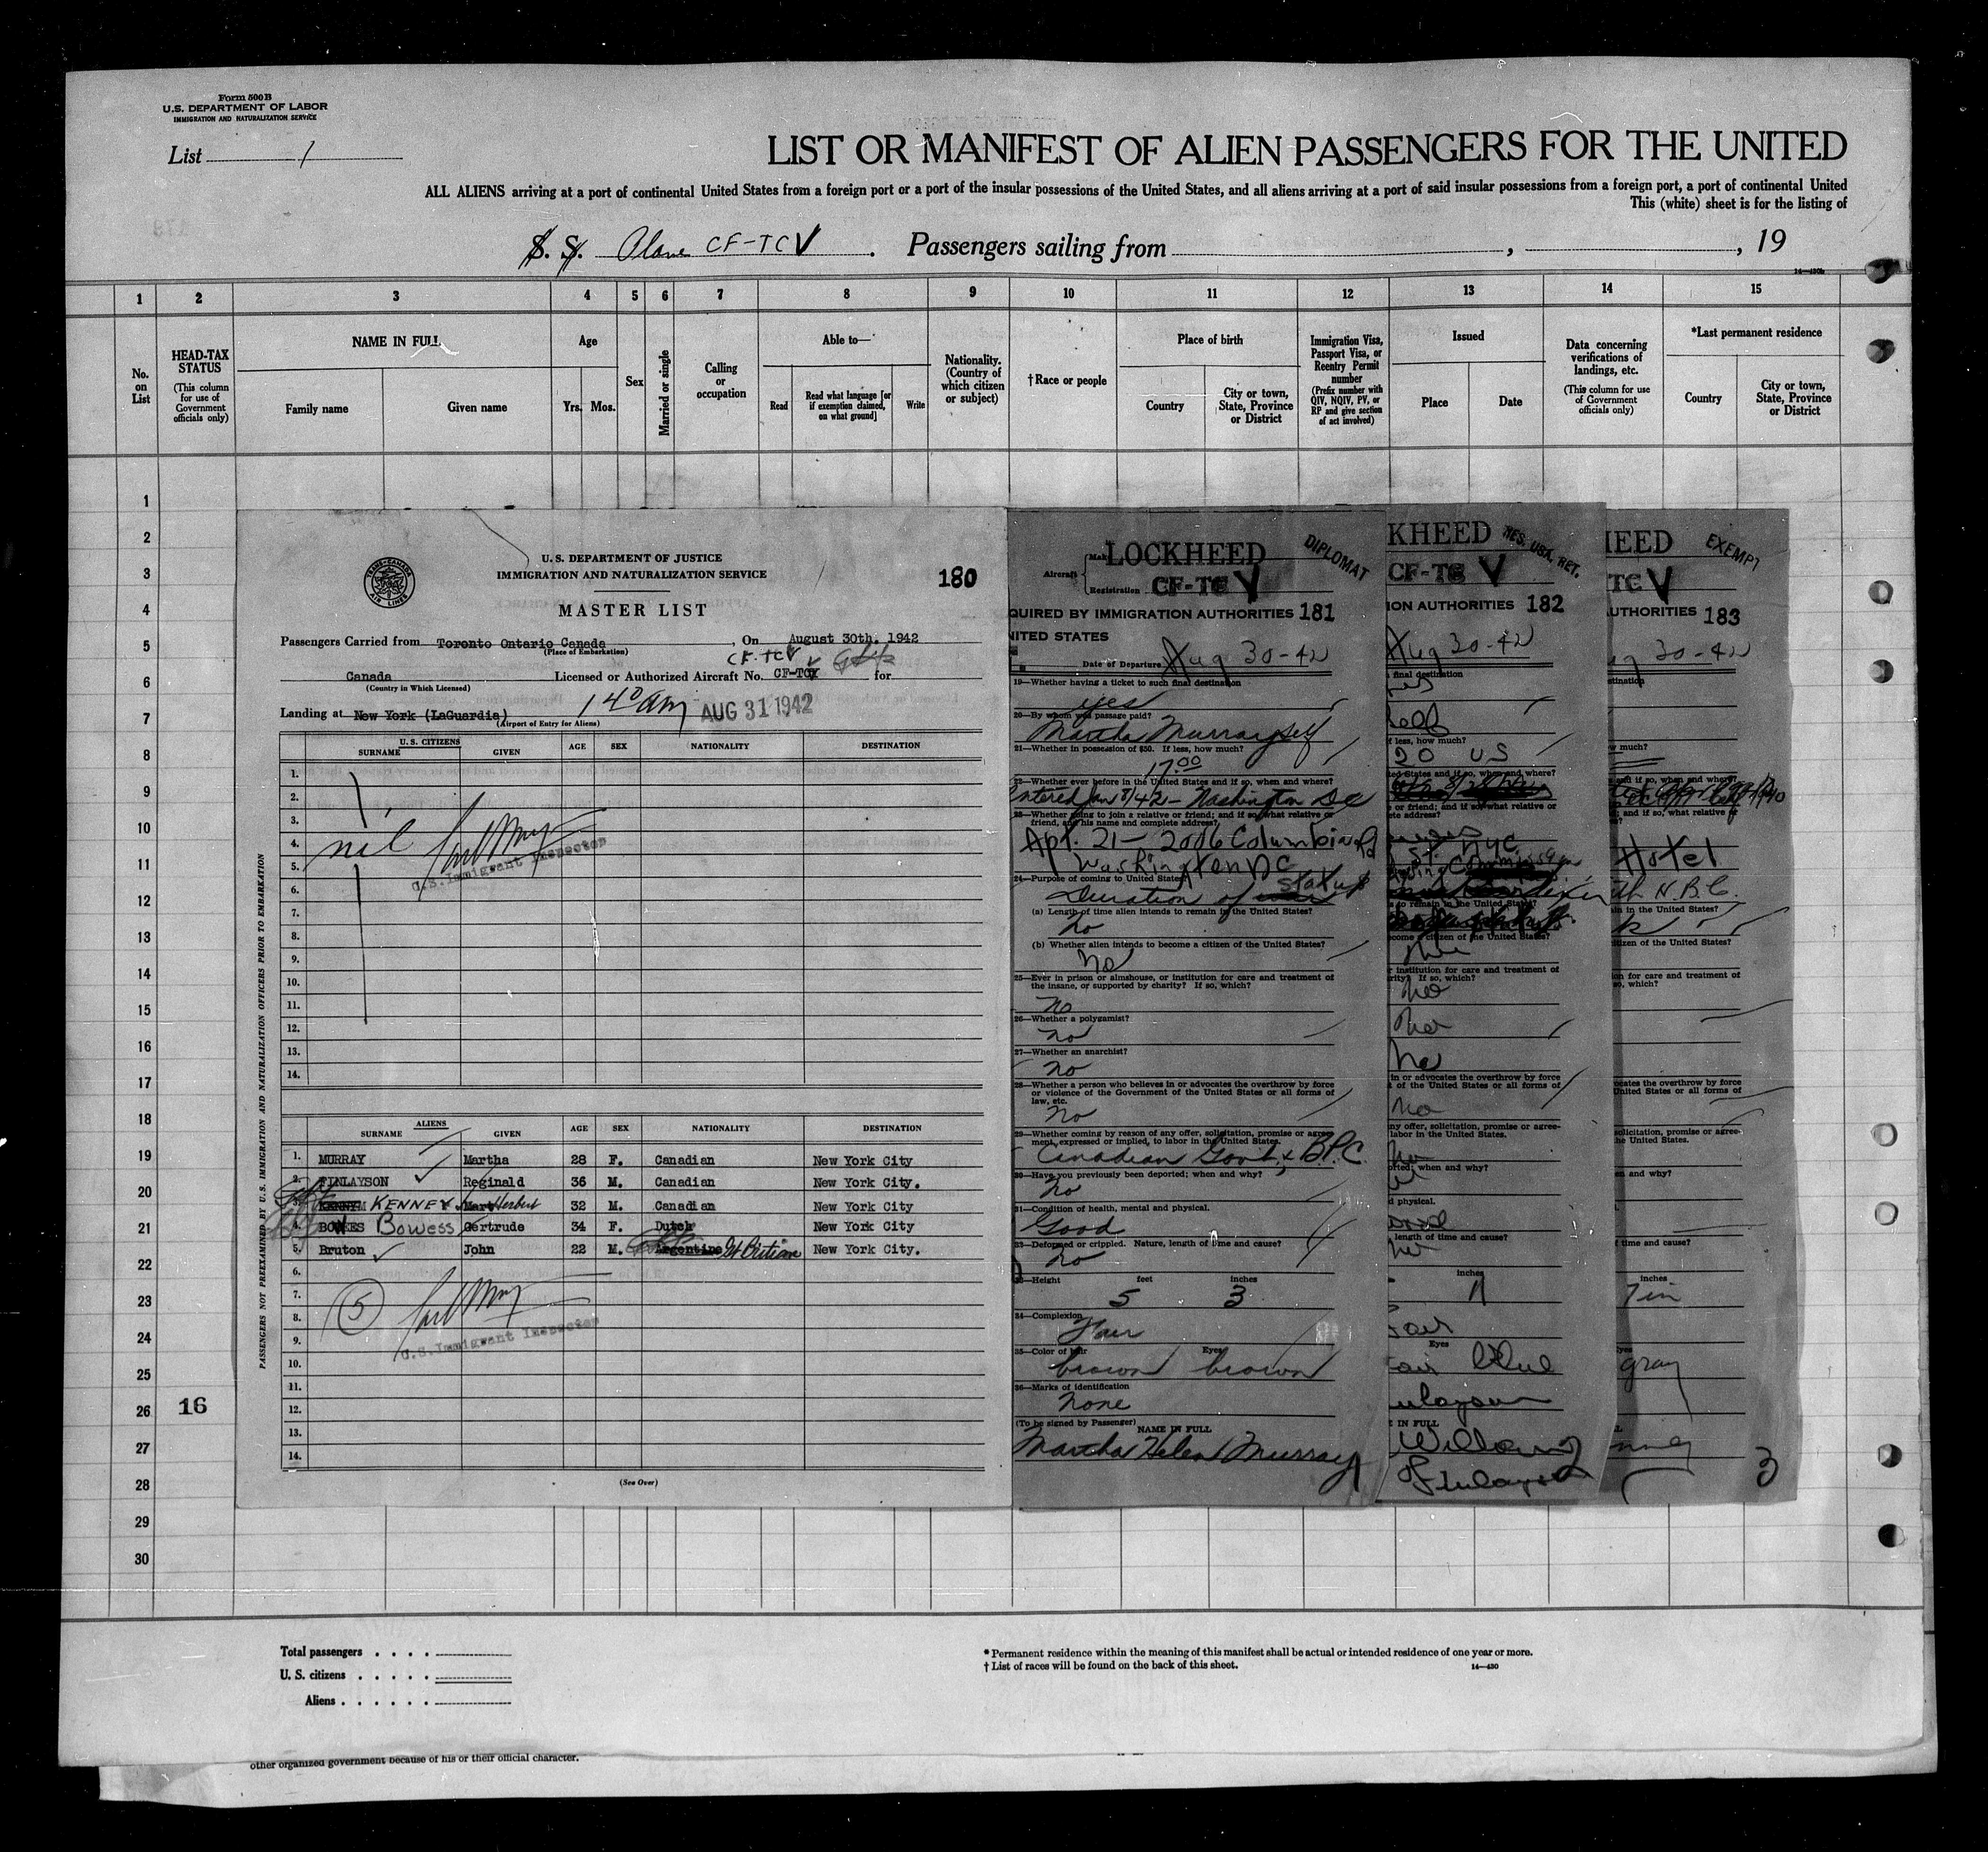 Form 500B
U.S. DEPARTMENT OF LABOR
IMMIGRATION AND NATURALIZATION SERVICE
List 1
LIST OR MANIFEST OF ALIEN PASSENGERS FOR THE UNITED
ALL ALIENS arriving at a port of continental United States from a foreign port or a port of the insular possessions of the United States, and all aliens arriving at a port of said insular possessions from a foreign port, a port of continental United
This (white) sheet is for the listing of
S. S. Plane CF-TCV . Passengers sailing from , , 19
14-430b
1 2 3 4 5 6 7 8 9 10 11 12 13 14 15
No. on List
HEAD-TAX STATUS
(This column for use of Government officials only)
NAME IN FULL
Family name Given name
Age
Yrs. Mos.
Sex
Married or single
Calling or occupation
Able to—
Read
Read what language [or if exemption claimed, on what ground]
Write
Nationality. (Country of which citizen or subject)
†Race or people
Place of birth
Country
City or town, State, Province or District
Immigration Visa, Passport Visa, or Reentry Permit number
(Prefix number with QIV, NQIV, PV, or RP and give section of act involved)
Issued
Place Date
Data concerning verifications of landings, etc.
(This column for use of Government officials only)
*Last permanent residence
Country
City or town, State, Province or District
1
2
3
4
5
6
7
8
9
10
11
12
13
14
15
16
17
18
19
20
21
22
23
24
25
26 16
27
28
29
30
TRANS-CANADA AIR LINES
U. S. DEPARTMENT OF JUSTICE
IMMIGRATION AND NATURALIZATION SERVICE
180
MASTER LIST
Passengers Carried from Toronto Ontario Canada , On August 30th. 1942
(Place of Embarkation)
CF-TCV
Canada Licensed or Authorized Aircraft No. CF-TCV for
(Country in Which Licensed)
Landing at New York (LaGuardia) 1 40 am AUG 31 1942
(Airport of Entry for Aliens)
PASSENGERS NOT PREEXAMINED BY U.S. IMMIGRATION AND NATURALIZATION OFFICERS PRIOR TO EMBARKATION
U. S. CITIZENS
SURNAME GIVEN AGE SEX NATIONALITY DESTINATION
1.
2.
3.
4. nil
5. U.S. Immigrant Inspector
6.
7.
8.
9.
10.
11.
12.
13.
14.
ALIENS
SURNAME GIVEN AGE SEX NATIONALITY DESTINATION
1. MURRAY Martha 28 F. Canadian New York City
2. FINLAYSON Reginald 36 M. Canadian New York City.
3. KENNY KENNEY Herbert 32 M. Canadian New York City
4. BOWES Bowess Gertrude 34 F. Dutch New York City
5. Bruton John 22 M. Argentine Gt Britian New York City.
6.
7. (5)
8.
9. U.S. Immigrant Inspector
10.
11.
12.
13.
14.
(See Over)
Aircraft Make LOCKHEED DIPLOMAT
Registration CF-TCV
QUIRED BY IMMIGRATION AUTHORITIES 181
NITED STATES
Date of Departure Aug 30-42
19—Whether having a ticket to such final destination
yes
20—By whom was passage paid?
Martha Murray self
21—Whether in possession of $50. If less, how much?
17.00
22—Whether ever before in the United States and if so, when and where?
Entered Jan 8/42 - Washington DC
23—Whether going to join a relative or friend; and if so, what relative or friend, and his name and complete address?
Apt. 21 - 2006 Columbia Rd
Washington DC
24—Purpose of coming to United States
Duration of status
(a) Length of time alien intends to remain in the United States?
No
(b) Whether alien intends to become a citizen of the United States?
No
25—Ever in prison or almshouse, or institution for care and treatment of the insane, or supported by charity? If so, which?
No
26—Whether a polygamist?
no
27—Whether an anarchist?
no
28—Whether a person who believes in or advocates the overthrow by force or violence of the Government of the United States or all forms of law, etc.
no
29—Whether coming by reason of any offer, solicitation, promise or agreement, expressed or implied, to labor in the United States.
Canadian Govt. B.P.C.
30—Have you previously been deported; when and why?
No
31—Condition of health, mental and physical.
Good
32—Deformed or crippled. Nature, length of time and cause?
no
33—Height feet inches
5 3
34—Complexion
Fair
35—Color of hair Eyes
brown brown
36—Marks of identification
none
(To be signed by Passenger) NAME IN FULL
Martha Helen Murray
1
KHEED RES. USA. RET.
CF-TC V
ION AUTHORITIES 182
Aug 30-42
final destination
yes
self
f less, how much?
20 US
ted States and if so, when and where?
or friend; and if so, what relative or
ete address?
St. NYC
so to remain in the United States?
become a citizen of the United States?
r institution for care and treatment of
rity? If so, which?
no
no
no
in or advocates the overthrow by force
t of the United States or all forms of
no
ny offer, solicitation, promise or agree-
labor in the United States.
no
orted; when and why?
d physical.
length of time and cause?
inches
11
Fair
Eyes
blue
E IN FULL
Finlayson
2
HEED EXEMPT
TC V
UTHORITIES 183
30-42
stination
w much?
and if so, when and where?
; and if so, what relative or
Hotel
N.B.C.
in in the United States?
tizen of the United States?
on for care and treatment of
o, which?
ocates the overthrow by force
United States or all forms of
solicitation, promise or agree-
he United States.
en and why?
f time and cause?
inches
7 in
Eyes
gray
3
Total passengers . . . .
U. S. citizens . . . . .
Aliens . . . . . .
* Permanent residence within the meaning of this manifest shall be actual or intended residence of one year or more.
† List of races will be found on the back of this sheet.
14-430
other organized government because of his or their official character.